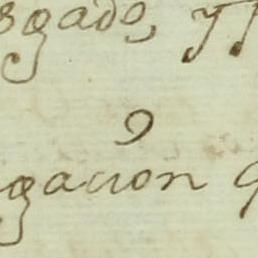 sgado, y
gacion q